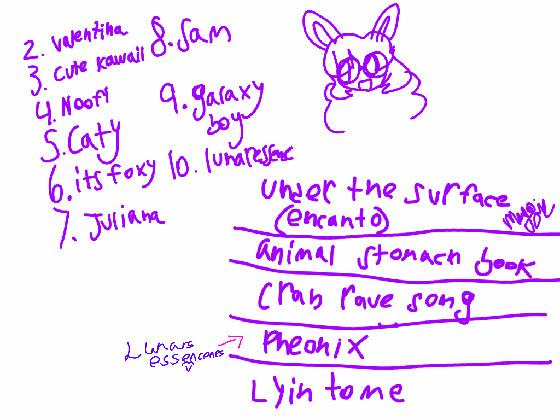 2. valentina
3. cute kawaii
4. Noofy
5. Caty
6. its foxy
7. Juliana
8. Sam
9. galaxy
boy
10. lunaressenc
under the surface
(encanto)
animal stomach book
Crab rave song
Pheonix
Lunars
essencones
Lyin to me